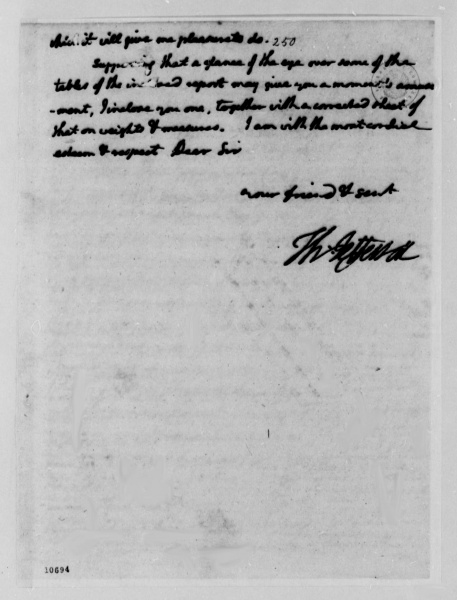 which it will give me pleasure to do. 250
Supposing that a glance of the eye over some of the
tables of the inclosed report may give you a moment's amuse
-ment, I inclose you one, together with a corrected sheet of
that on weights & measures. I am with the most cordial
esteem & respect Dear Sir
your friend & servt
Th Jefferson
10694